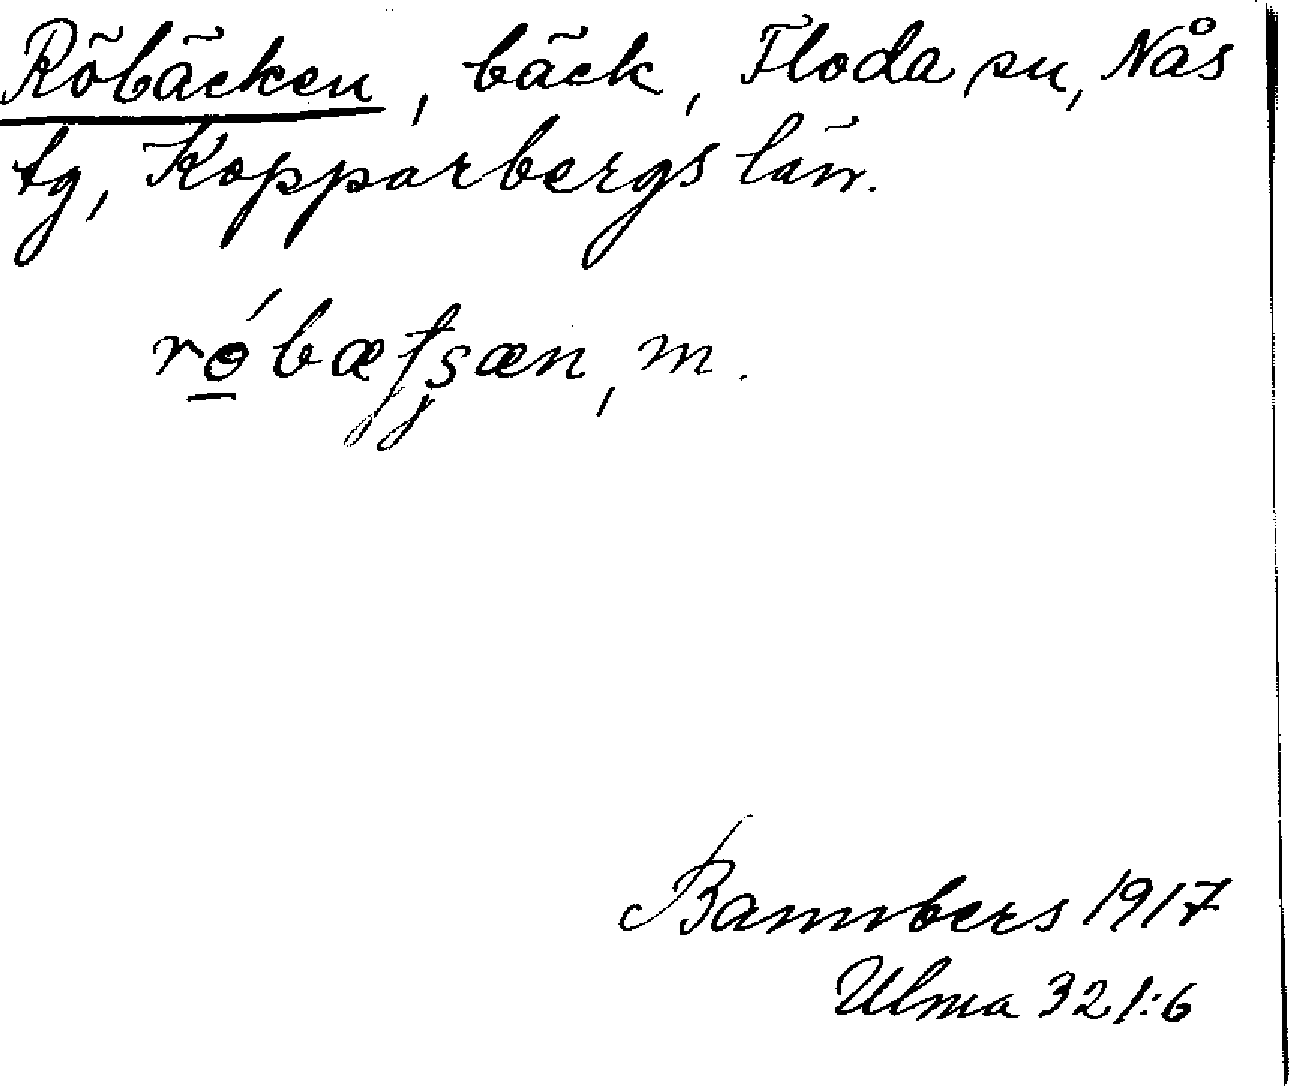 Röbäcken, bäck, Floda sn, Nås
tg, Kopparbergs län.
m.
Bannbers 1917
Ulma 321:6